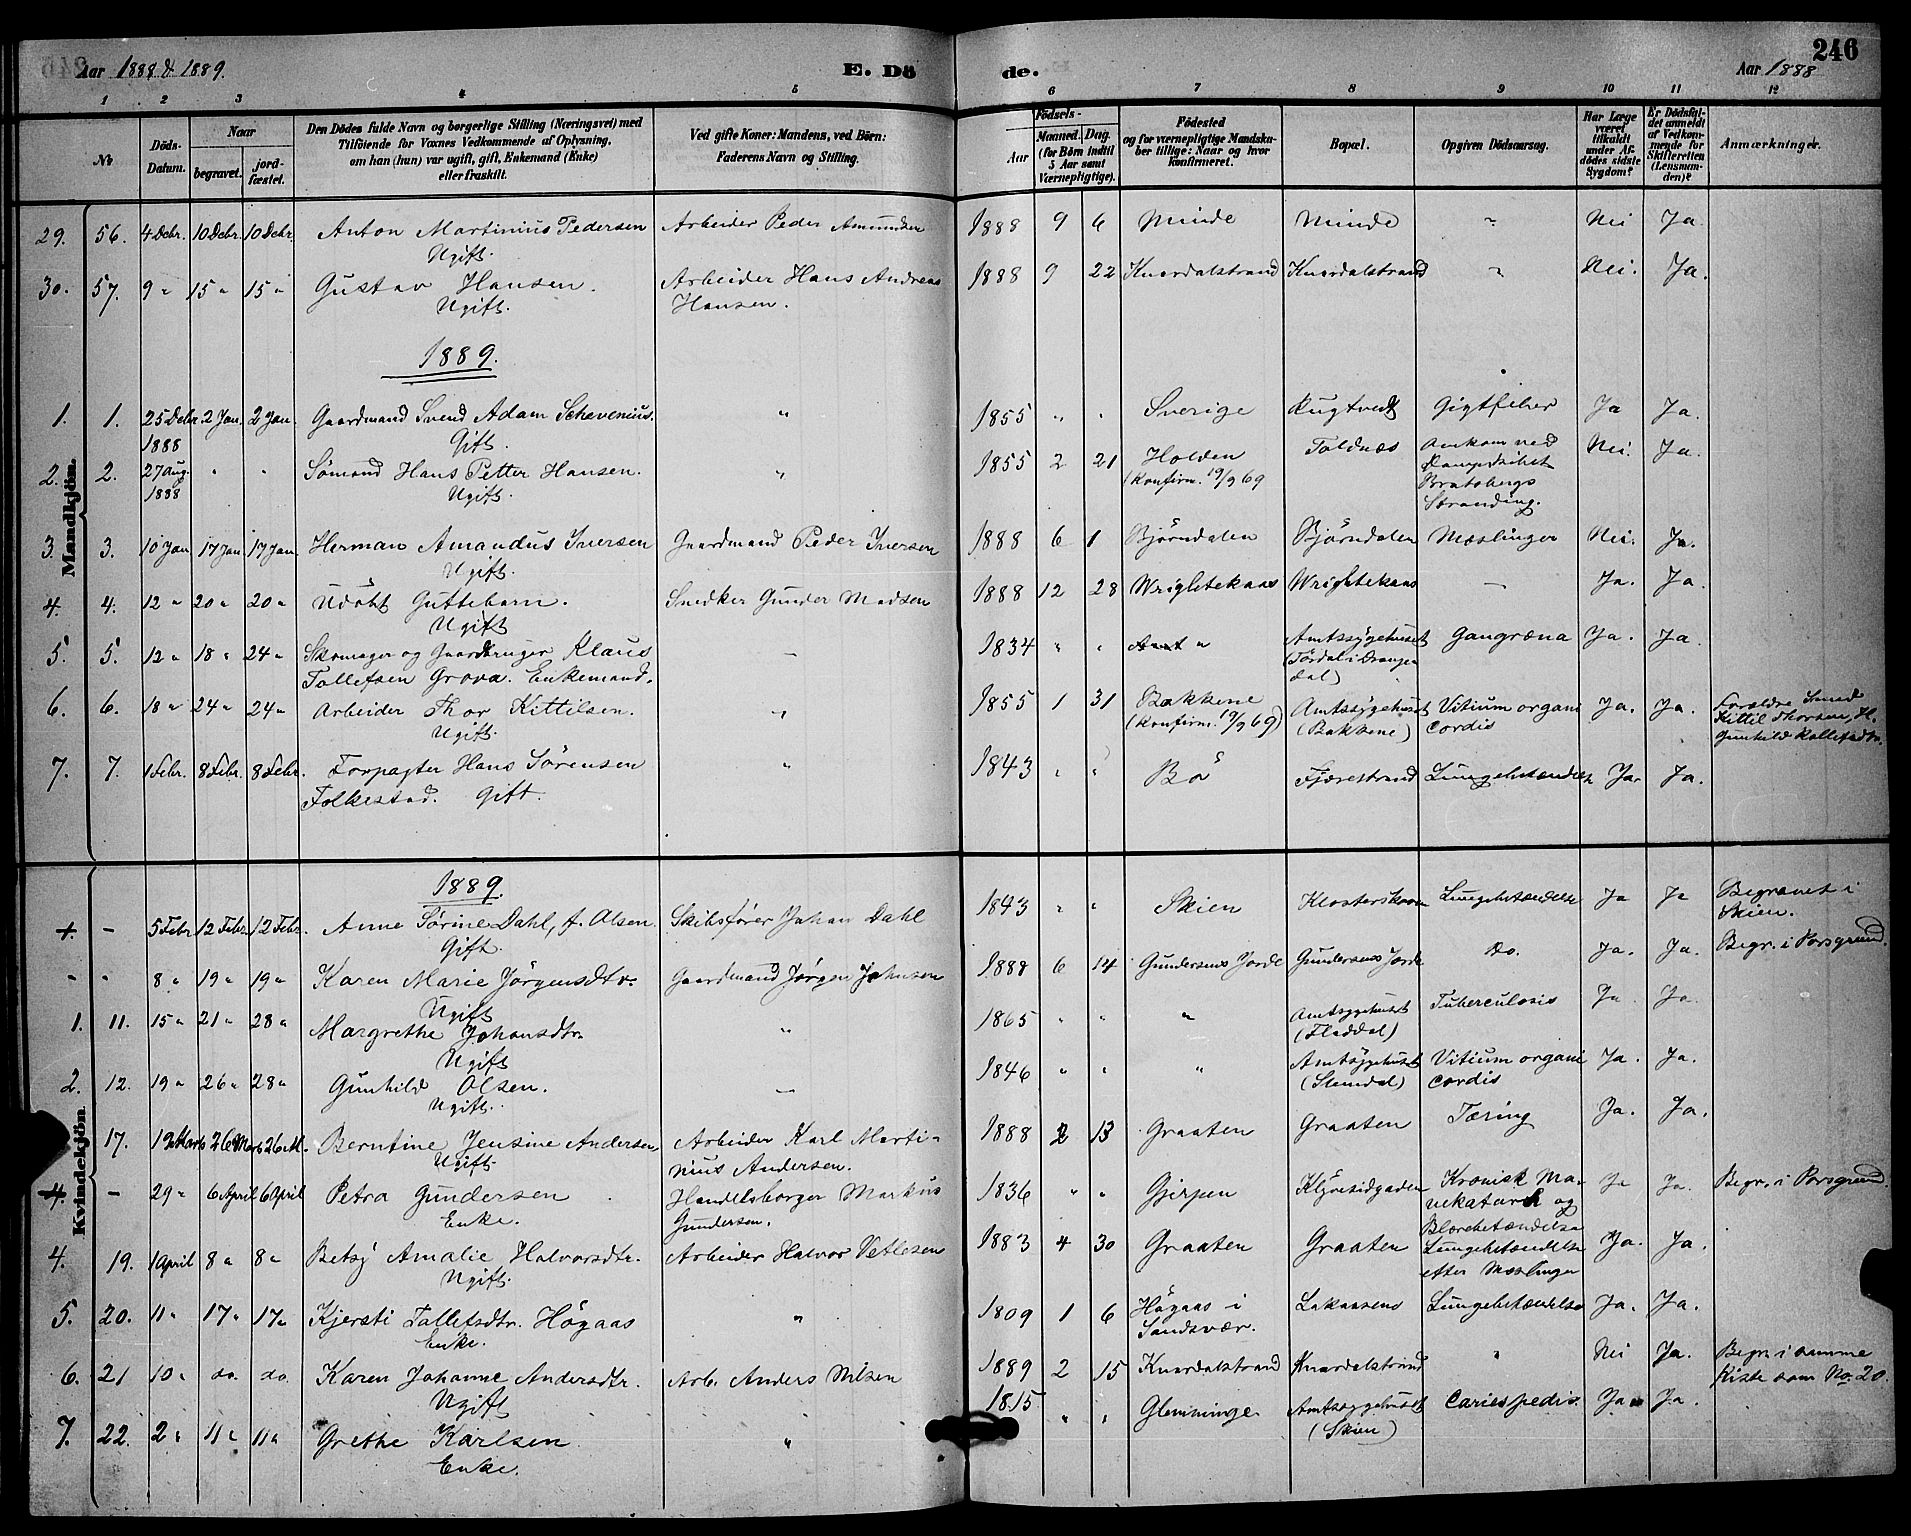 Aar 1888 & 1889.
E. Dö
de.
Aar 1888
246
1 2 3 4 5 6 7 8 9 10 11 12
No
Döds-
Datum.
Naar
begravet.
jord-
fæstet.
Den Dödes fulde Navn og borgerlige Stilling (Næringsvei) med
Tilföiende for Voxnes Vedkommende af Oplysning,
om han (hun) var ugift, gift, Enkemand (Enke)
eller fraskilt.
Ved gifte Koner: Mandens, ved Börn:
Faderens Navn og Stilling.
Födsels-
Aar
Maaned. Dag.
(for Börn indtil
5 Aar samt
Værnepligtige).
Födested
og for værnepligtige Mandska-
ber tillige: Naar og hvor
konfirmeret.
Bopæl.
Opgiven Dödsaarsag.
Har Læge
været
tilkaldt
under Af-
dödes sidste
Sygdom?
Er Dödsfal-
det anmeldt
af Vedkom-
mende for
Skifteretten
(Lensman-
den)?
Anmærkninger.
Mandkjön.
29. 56. 4 Debr. 10 Debr. 10 Debr. Anton Martinius Pedersen Arbeider Peder Amundsen 1888 9 6 Minde Minde " Nei Ja
Ugift.
30. 57. 9 " 15 " 15 " Gustav Hansen. Arbeider Hans Andreas 1888 9 22 Knardalstrand Knardalstrand " Nei. Ja.
Ugift. Hansen.
1889.
1. 1. 25 Debr. 2 Jan. 2 Jan. Gaardmand Svend Adam Schevenius. " 1855 " " Sverige Rugtvedt Gigtfeber Ja Ja.
1888 Gift.
2. 2. 27 Aug. " " Sømand Hans Petter Hansen. " 1855 2 21 Holden Foldnæs Omkom ved Nei. Ja.
1888 Ugift. (Konfirm. 19/9 69 Dampskibet
Bratsbergs
Stranding.
3. 3. 10 Jan 17 Jan. 17 Jan. Herman Amandus Iversen Gaardmand Peder Iversen 1888 6 1 Bjørndalen Bjørndalen Mæslinger Nei. Ja.
Ugift.
4. 4. 12 " 20 " 20 " Udöbt Guttebarn. Snedker Gunder Madsen 1888 12 28 Wrightekaas Wrightekaas — Ja. Ja.
Ugift
5. 5. 12 " 18 " 24 " Skomager og Gaardbruger Klaus — 1834 " " " Amtssygehuset Gangræna Ja. Ja.
Tollefsen Grova. Enkemand. (Tørdal i Drange-
dal)
6. 6. 18 " 24 " 24 " Arbeider Thor Kittilsen. " 1855 1 31 Bakkene Amtssygehuset Vitium organi Ja. Ja. Forældre Smed
Ugift. (Konfirm. 19/9 69) (Bakkene) Cordis Kittil Thorsen, H.
Gunhild
7. 7. 1 Febr. 8 Febr. 8 Febr. Forpagter Hans Sörensen " 1843 " " Bö Fjærestrand Lungebetændelse Ja. Ja.
Folkestad. Gift.
Kvindekjön.
1889.
+. – 5 Febr 12 Febr. 12 Febr. Anne Sørine Dahl, f. Olsen. Skibsfører Johan Dahl 1843 " " Skien Klosterskoven Lungebetændelse Ja Ja Begravet i
Gift. Skien.
" " 8 " 19 " 19 " Karen Marie Jörgensdtr. Gaardmand Jørgen Johnsen 1888 6 14 Gundersens Jorde Gundersens Jorde Do. Ja. Ja. Begr. i Porsgrund.
Ugift
1. 11. 15 " 21 " 28 " Margrethe Johansdtr. " 1865 " " " Amtssygehuset Tuberculosis Ja. Ja.
Ugift (Fladdal)
2. 12. 19 " 26 " 28 " Gunhild Olsen. — 1846 " " " Amtssygehuset Vitium organi Ja. Ja.
Ugift. (Slemdal) Cordis
17. 19 Marts 26 Marts 26 M. Berntine Jensine Andersen Arbeider Karl Marti- 1888 2 13 Graaten Graaten Tæring Ja. Ja.
Ugift. nius Andersen.
4. – 29 " 6 April 6 April Petra Gundersen Handelsborger Markus 1836 " " Gjerpen Klyvesidgaden Kronisk Ma- Ja Ja. Begr. i Porsgrund.
Enke. Gundersen. vekatarrh og
Blærebetændelse
4. 19. 1 April 8 " 8 " Betsy Amalie Halvorsdtr. Arbeider Halvor Vetlesen 1883 4 30 Graaten Graaten Lungebetændelse Ja. Ja.
Ugift. efter Mæslinger
5. 20. 11 " 17 " 17 " Kjersti Tollefsdtr. Högaas " 1809 1 6 Högaas i Lakaasens Lungebetændelse Ja. Ja.
Enke. Sandsvær.
6. 21 10 " do. do. Karen Johanne Andersdtr. Arb. Anders Nilsen 1889 2 15 Knardalstrand Knardalstrand " Nei Ja. Begr. i samme
Ugift Kiste som No. 20.
7. 22. 2 " 11 " 11 " Grethe Karlsen " 1815 " " Glemminge Amtssygehuset Caries pedis. Ja Ja.
Enke. (Skien)